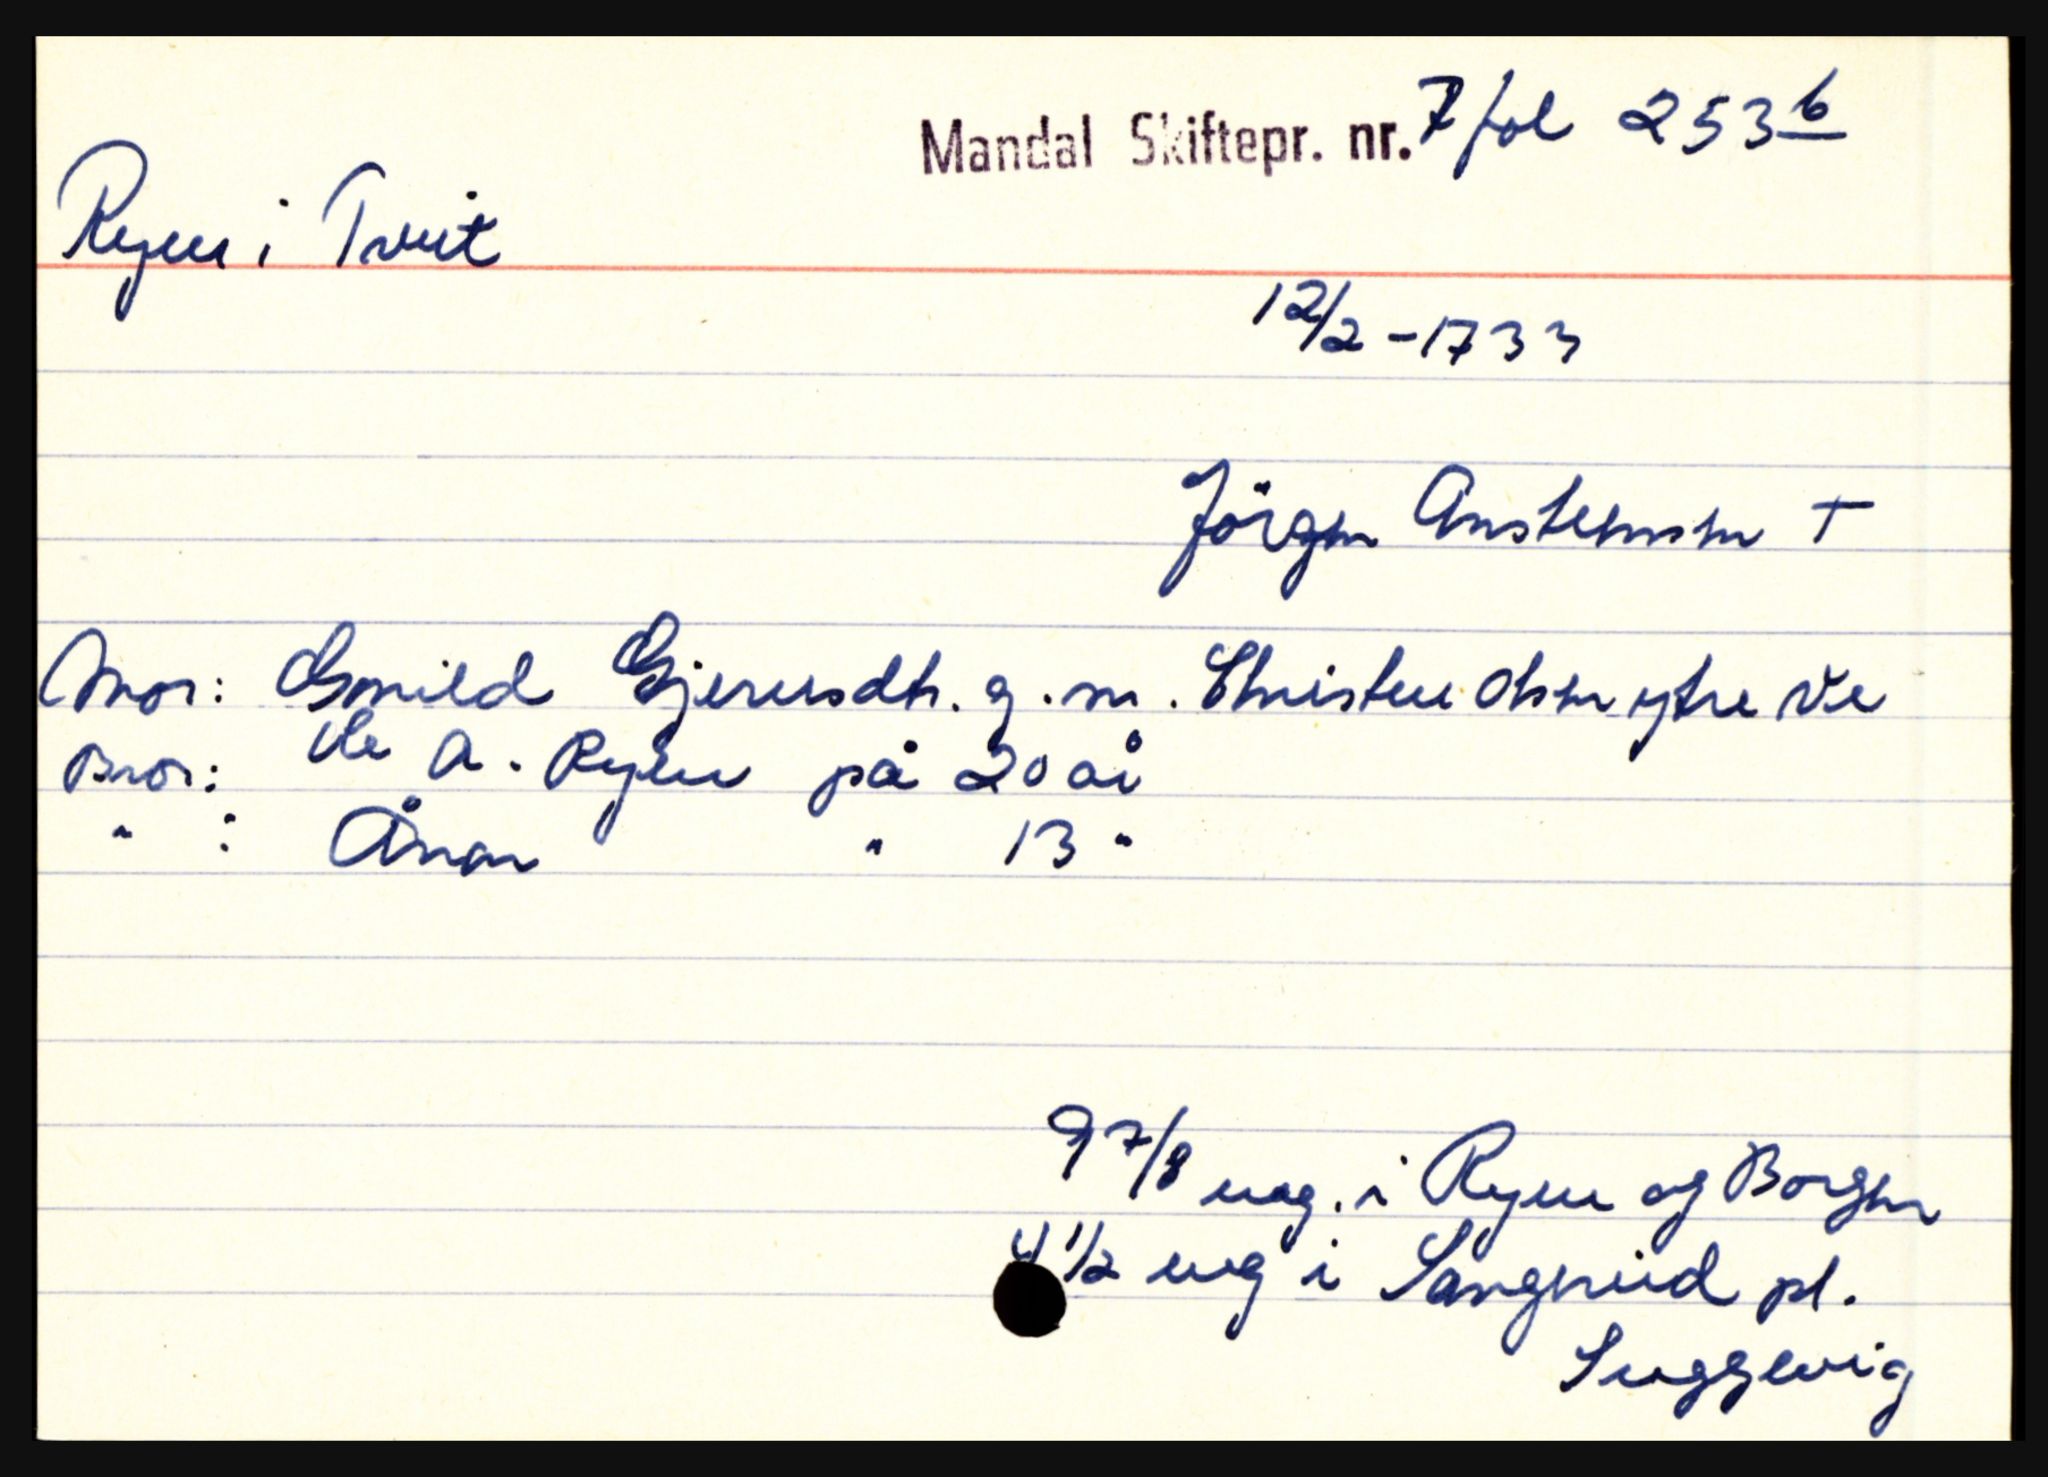 Mandal Skiftepr. nr. 7 fol 253b
Ryen i Tveit
12/2 - 1733
Jörgen Anstensen †
Mor: Gunild Gjerusdtr. g. m. Christen Olsen ytre Ve
Bror: Ole A. Ryen på 20 år
" : Ånon " 13 "
9 7/8 eng. i Ryen og Borgen
4 1/2 eng i Sangvid pl.